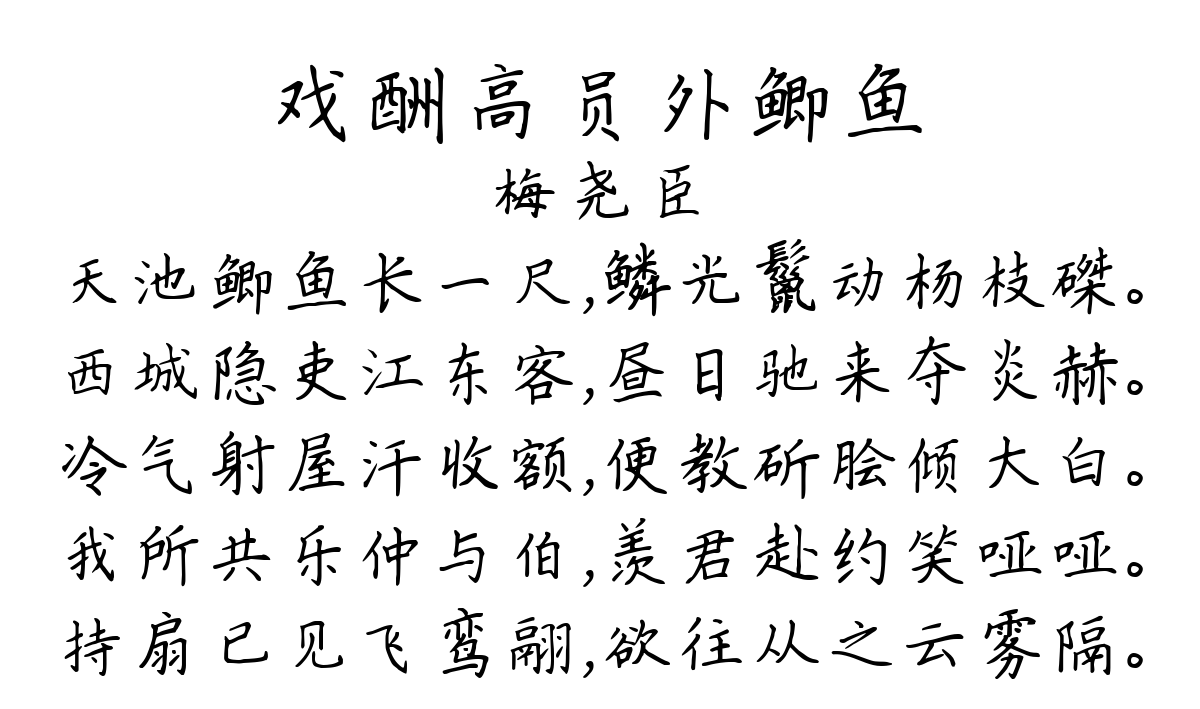 戏酬高员外鲫鱼
梅尧臣
天池鲫鱼长一尺,鳞光鬣动杨枝磔。
西城隐吏江东客,昼日驰来夺炎赫。
冷气射屋汗收额,便教斫脍倾大白。
我所共乐仲与伯,羡君赴约笑哑哑。
持扇已见飞鸾翮,欲往从之云雾隔。